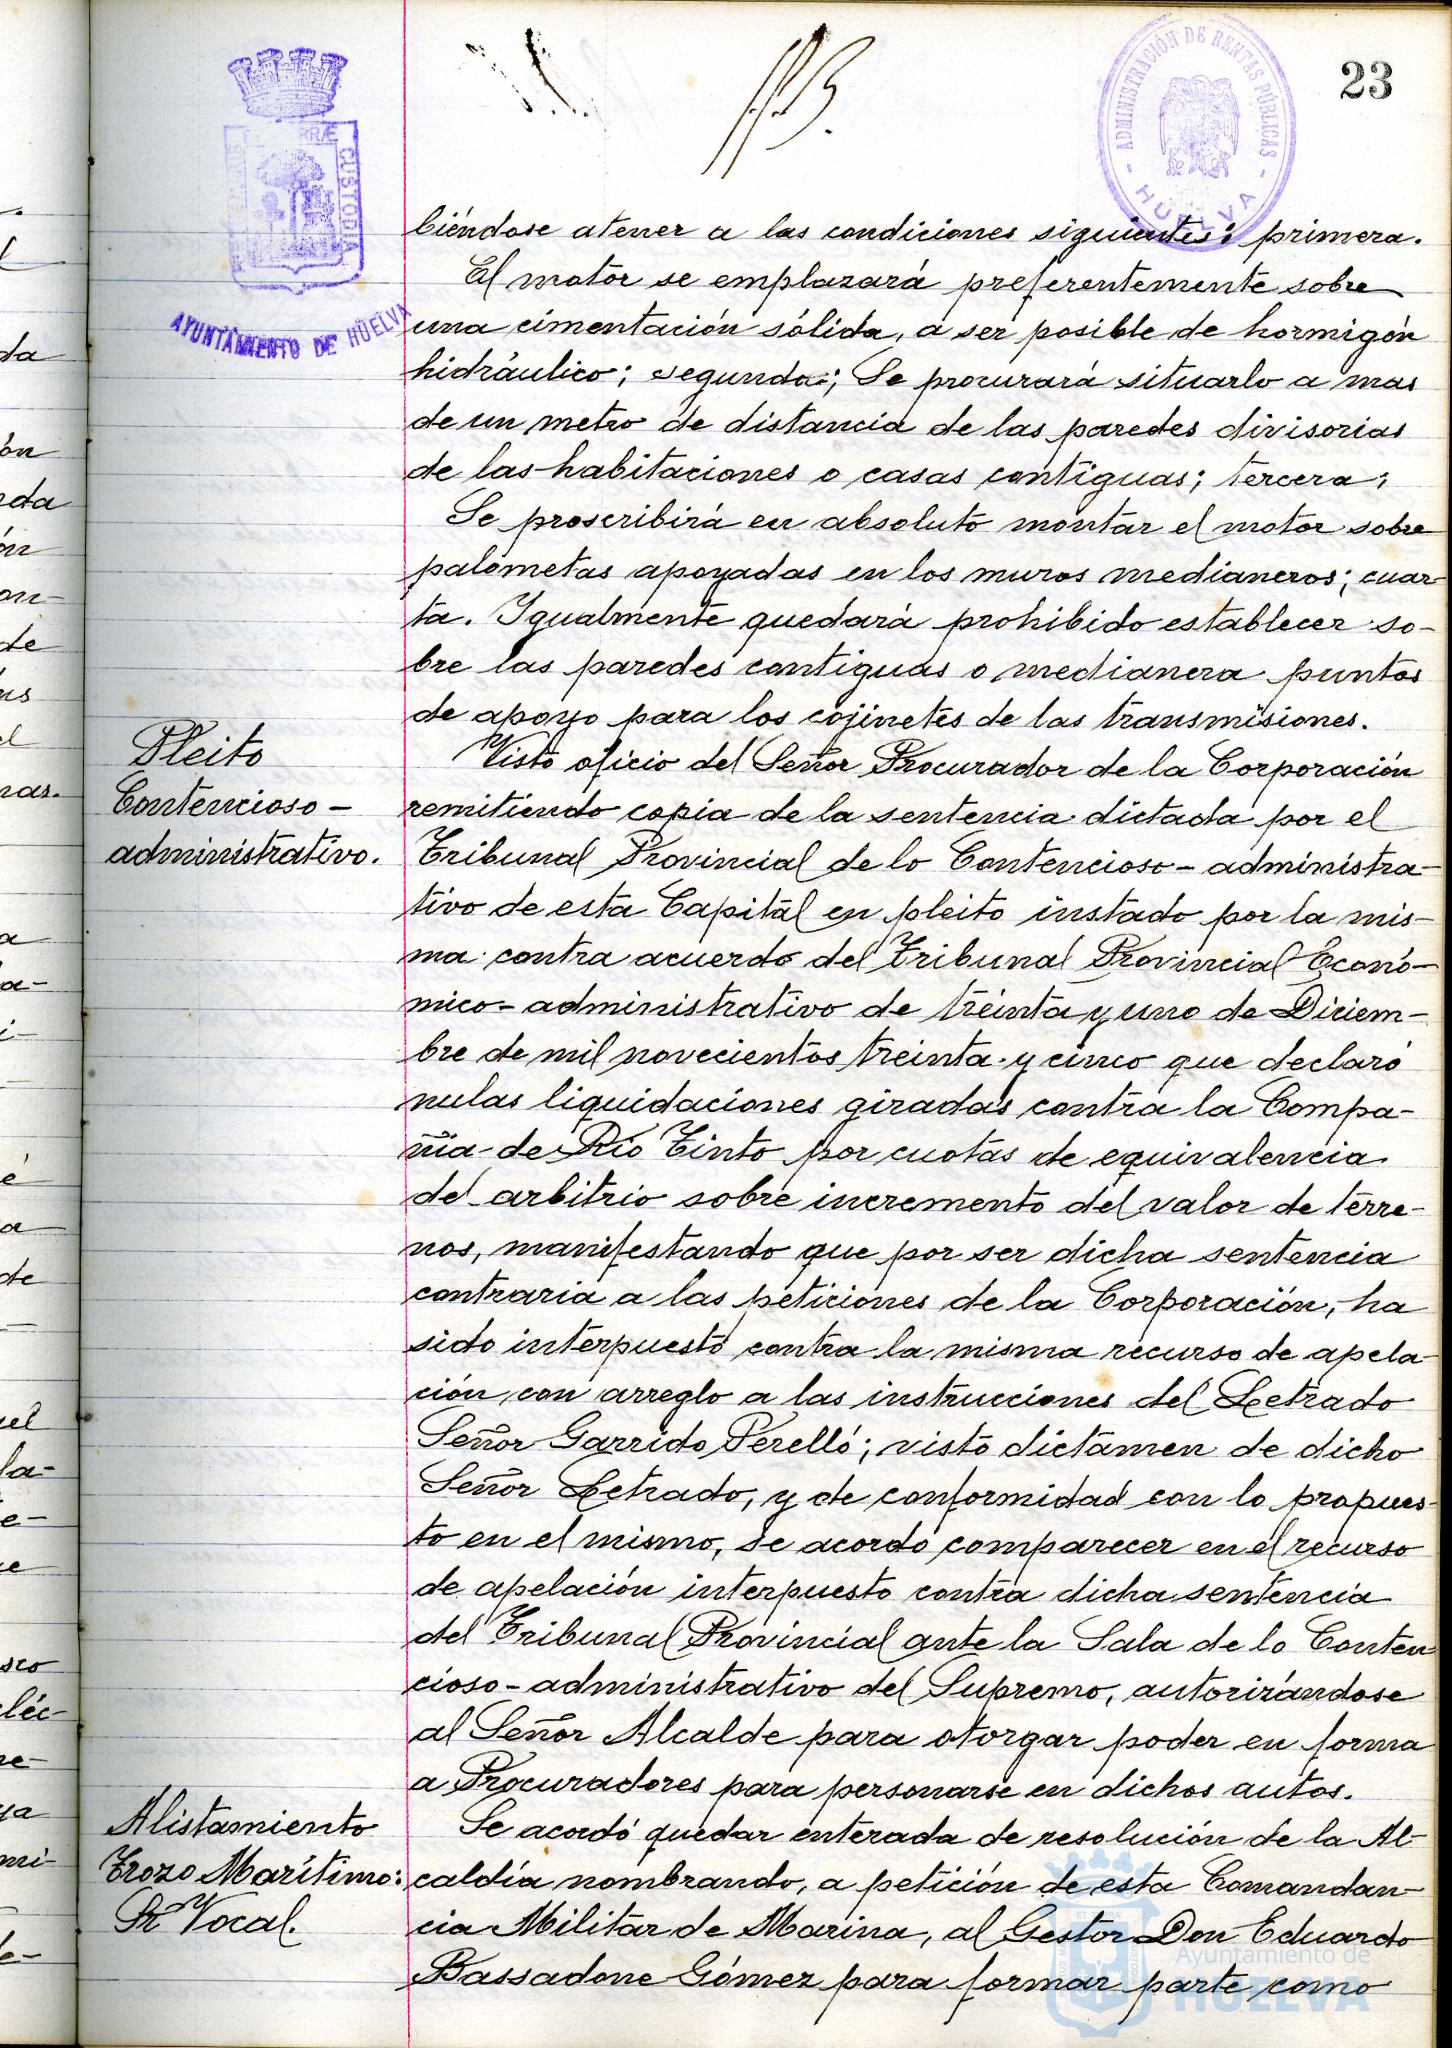 23
ADMINISTRACIÓN DE RENTAS PÚBLICAS
- HUELVA -
CUSTODIA
AYUNTAMIENTO DE HUELVA
biéndose atener a las condiciones siguientes: primera.
El motor se emplazará preferentemente sobre
una cimentación sólida, a ser posible de hormigón
hidráulico; segunda; Se procurará situarlo a mas
de un metro de distancia de las paredes divisorias
de las habitaciones o casas contiguas; tercera;
Se proscribirá en absoluto montar el motor sobre
palometas apoyadas en los muros medianeros; cuar-
ta. Igualmente quedará prohibido establecer so-
bre las paredes contiguas o medianera puntos
de apoyo para los cojinetes de las transmisiones.
Pleito
Contencioso-
administrativo.
Visto oficio del Señor Procurador de la Corporación
remitiendo copia de la sentencia dictada por el
Tribunal Provincial de lo Contencioso-administra-
tivo de esta Capital en pleito instado por la mis-
ma contra acuerdo del Tribunal Provincial Econó-
mico-administrativo de treinta y uno de Diciem-
bre de mil novecientos treinta y cinco que declaró
nulas liquidaciones giradas contra la Compa-
ñia de Río Tinto por cuotas de equivalencia
del arbitrio sobre incremento del valor de terre-
nos, manifestando que por ser dicha sentencia
contraria a las peticiones de la Corporación, ha
sido interpuesto contra la misma recurso de apela-
ción con arreglo a las instrucciones del Letrado
Señor Garrido Perelló; visto dictamen de dicho
Señor Letrado, y de conformidad con lo propues-
to en el mismo, se acordó comparecer en el recurso
de apelación interpuesto contra dicha sentencia
del Tribunal Provincial ante la Sala de lo Conten
cioso-administrativo del Supremo, autorizándose
al Señor Alcalde para otorgar poder en forma
a Procuradores para personarse en dichos autos.
Alistamiento
Trozo Marítimo:
Sr Vocal.
Se acordó quedar enterada de resolución de la Al-
caldía nombrando, a petición de esta Comandan-
cia Militar de Marina, al Gestor Don Eduardo
Bassadone Gómez para formar parte como
Ayuntamiento de
HUELVA